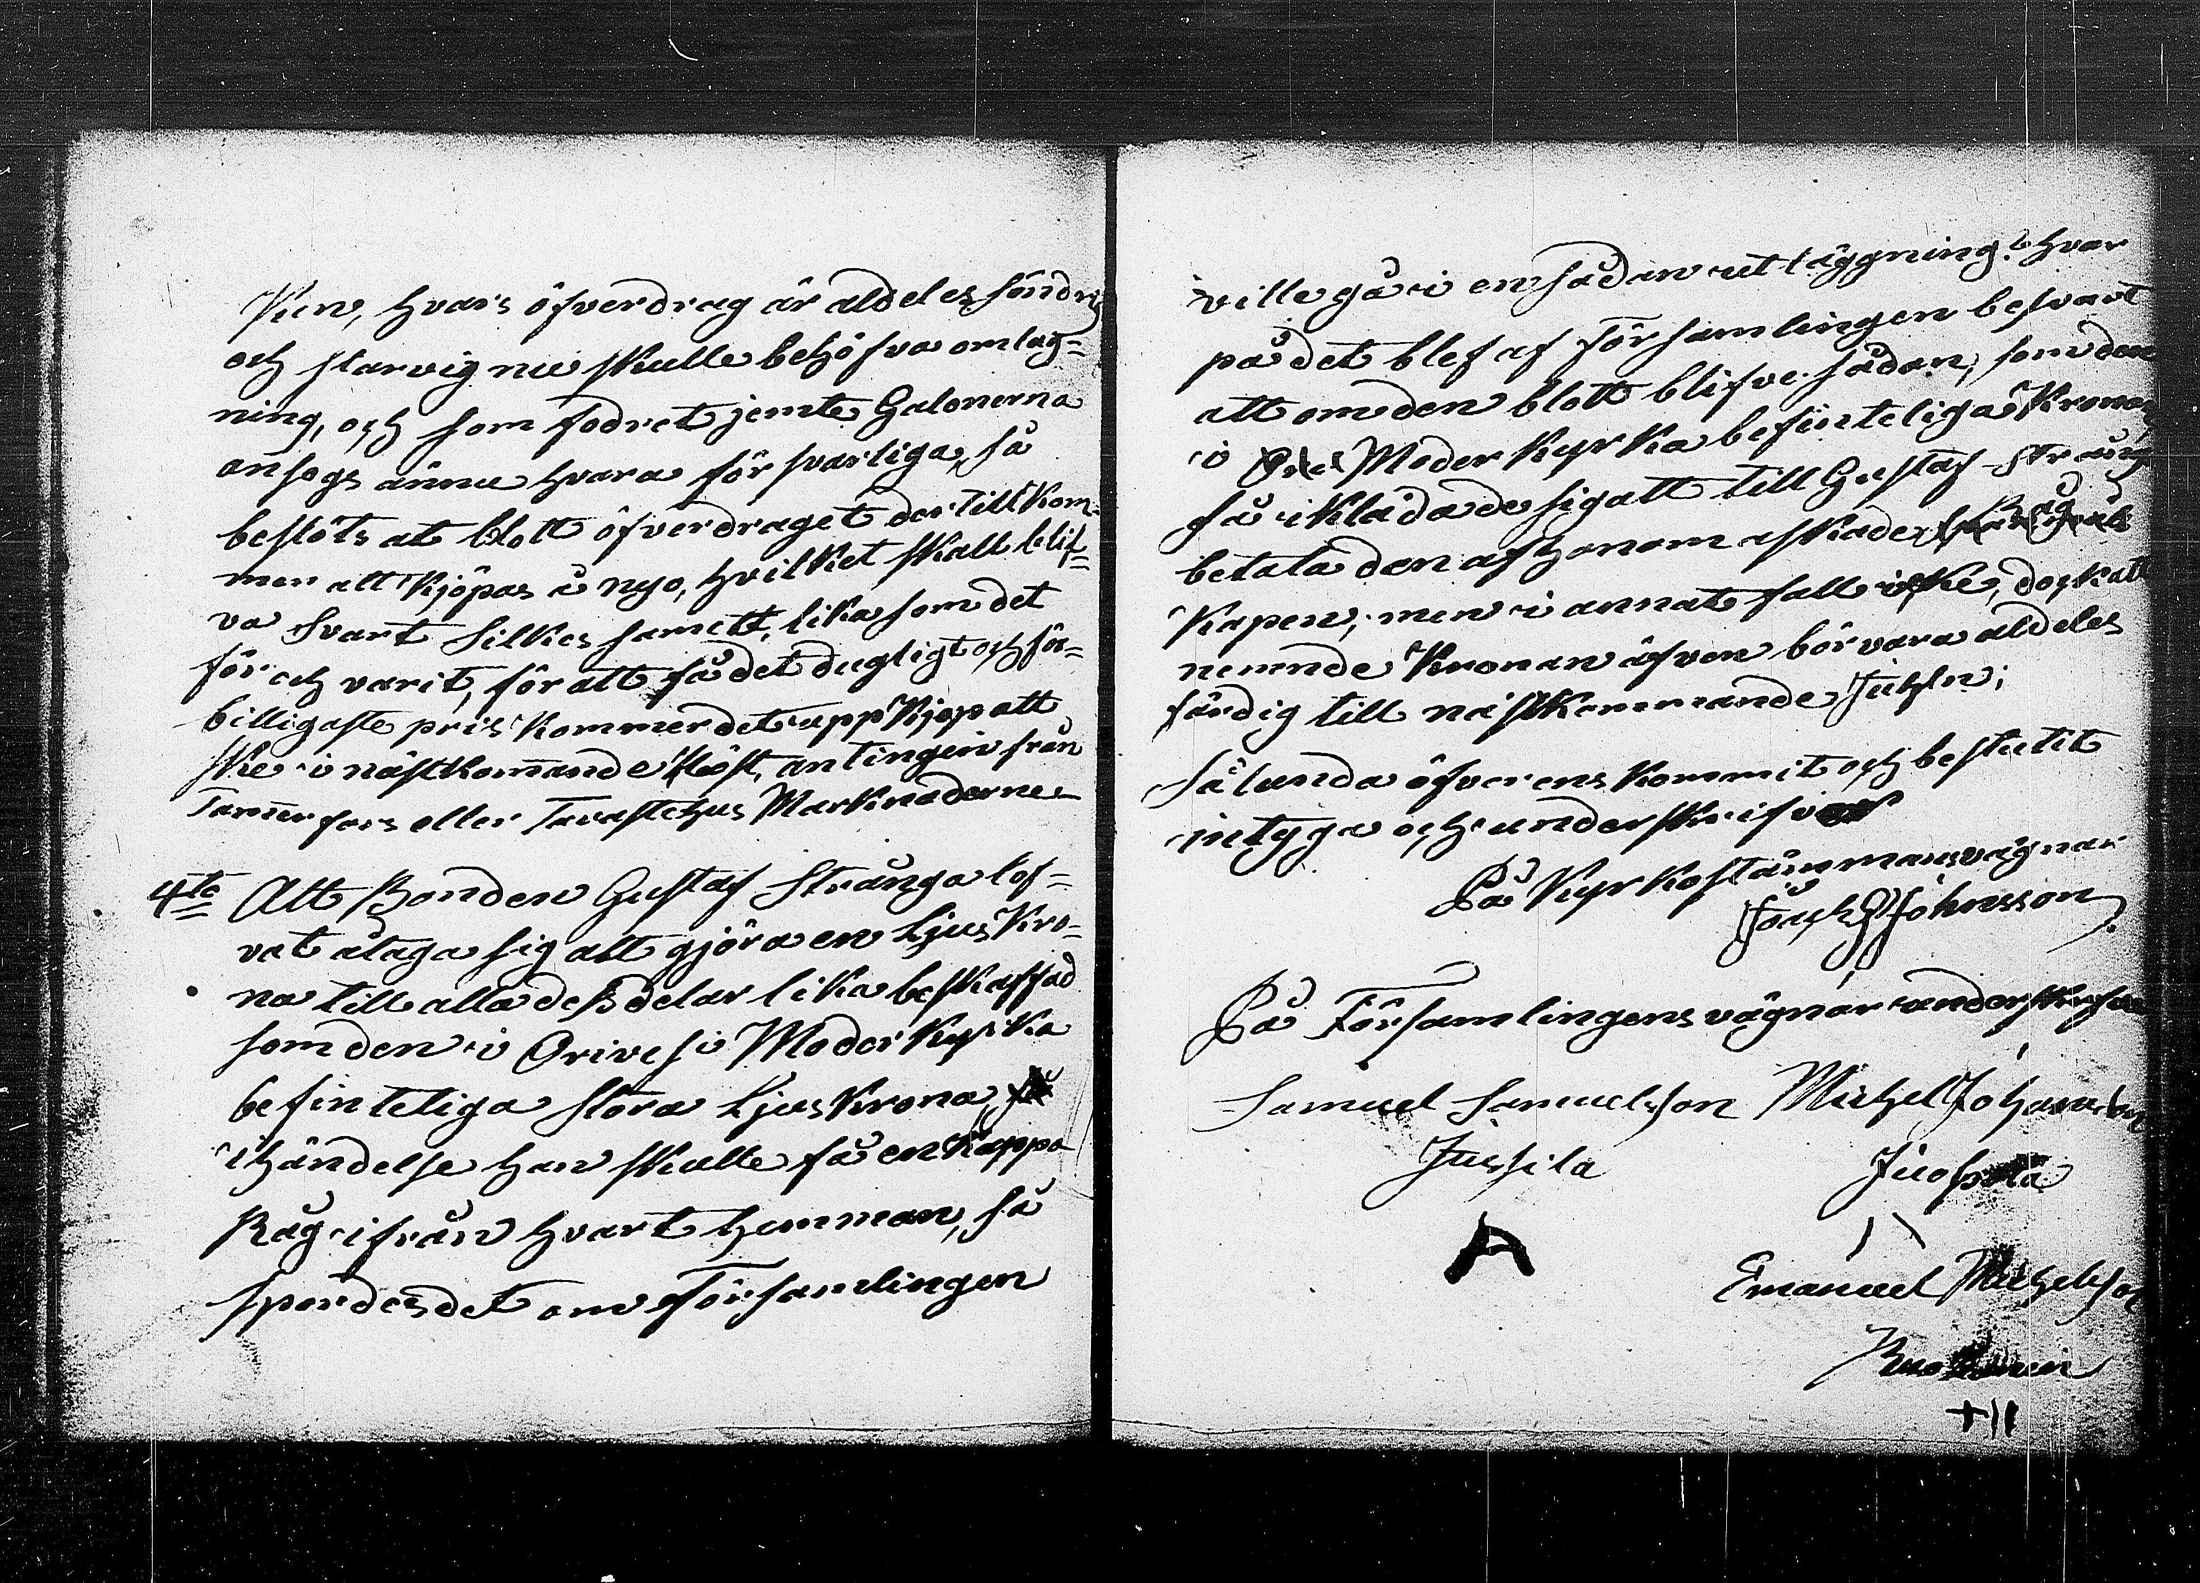 Ken, hvars öfverdrag är aldeles söndrig
och slarvig nu skulle behöfva omlag-
ning, och som fodret jemte Galonerna
ansogs ännu hvara försvarliga, så
beslöts at blott öfverdraget dertill kom-
mer att kjöpas å nyo, hvilket skall blif-
va Svart Silkes samett, lika som det
för och varit, för att få det dugligt och för
billigaste pris kommer det uppkjöp att
ske i nästkomande Höst, antingen från
Tamerfors eller Tavastehus Marknaderne
4to Att Bonden Gustaf Strånga lof-
vat åtaga sig att gjöra en Ljus Kro-
na till alla dess delar lika beskaffad
som den i Orivesi Moder Kyrka
befinteliga stora Ljuskrona,
i händelse han skulle få en Kappa
Råg ifrån hvart hemman, så
spordes det om Församlingen
ville gå i en sådan utläggning? hvar
på det blef af Församlingen besvart
att om den blott blifve sådan, som den
i Moder Kyrka befinteliga Kronan,
så ikládade sig att till Gustaf Strång
betala den af honom askade Råg
Kapen, men i annat fall icke, dock att
nemnde Kronan äfven bör vara aldeles
färdig till nästkommande Juhln;
Sålunda öfverenskommit och beslutit
intyga och underskrifva
På Kyrkostämmans vägnar
Johnsson
På Församlingens vägnar underskrifva
Samuel Samuelsson Michel Johansson
Jussila
A
Emanuel Michelsson